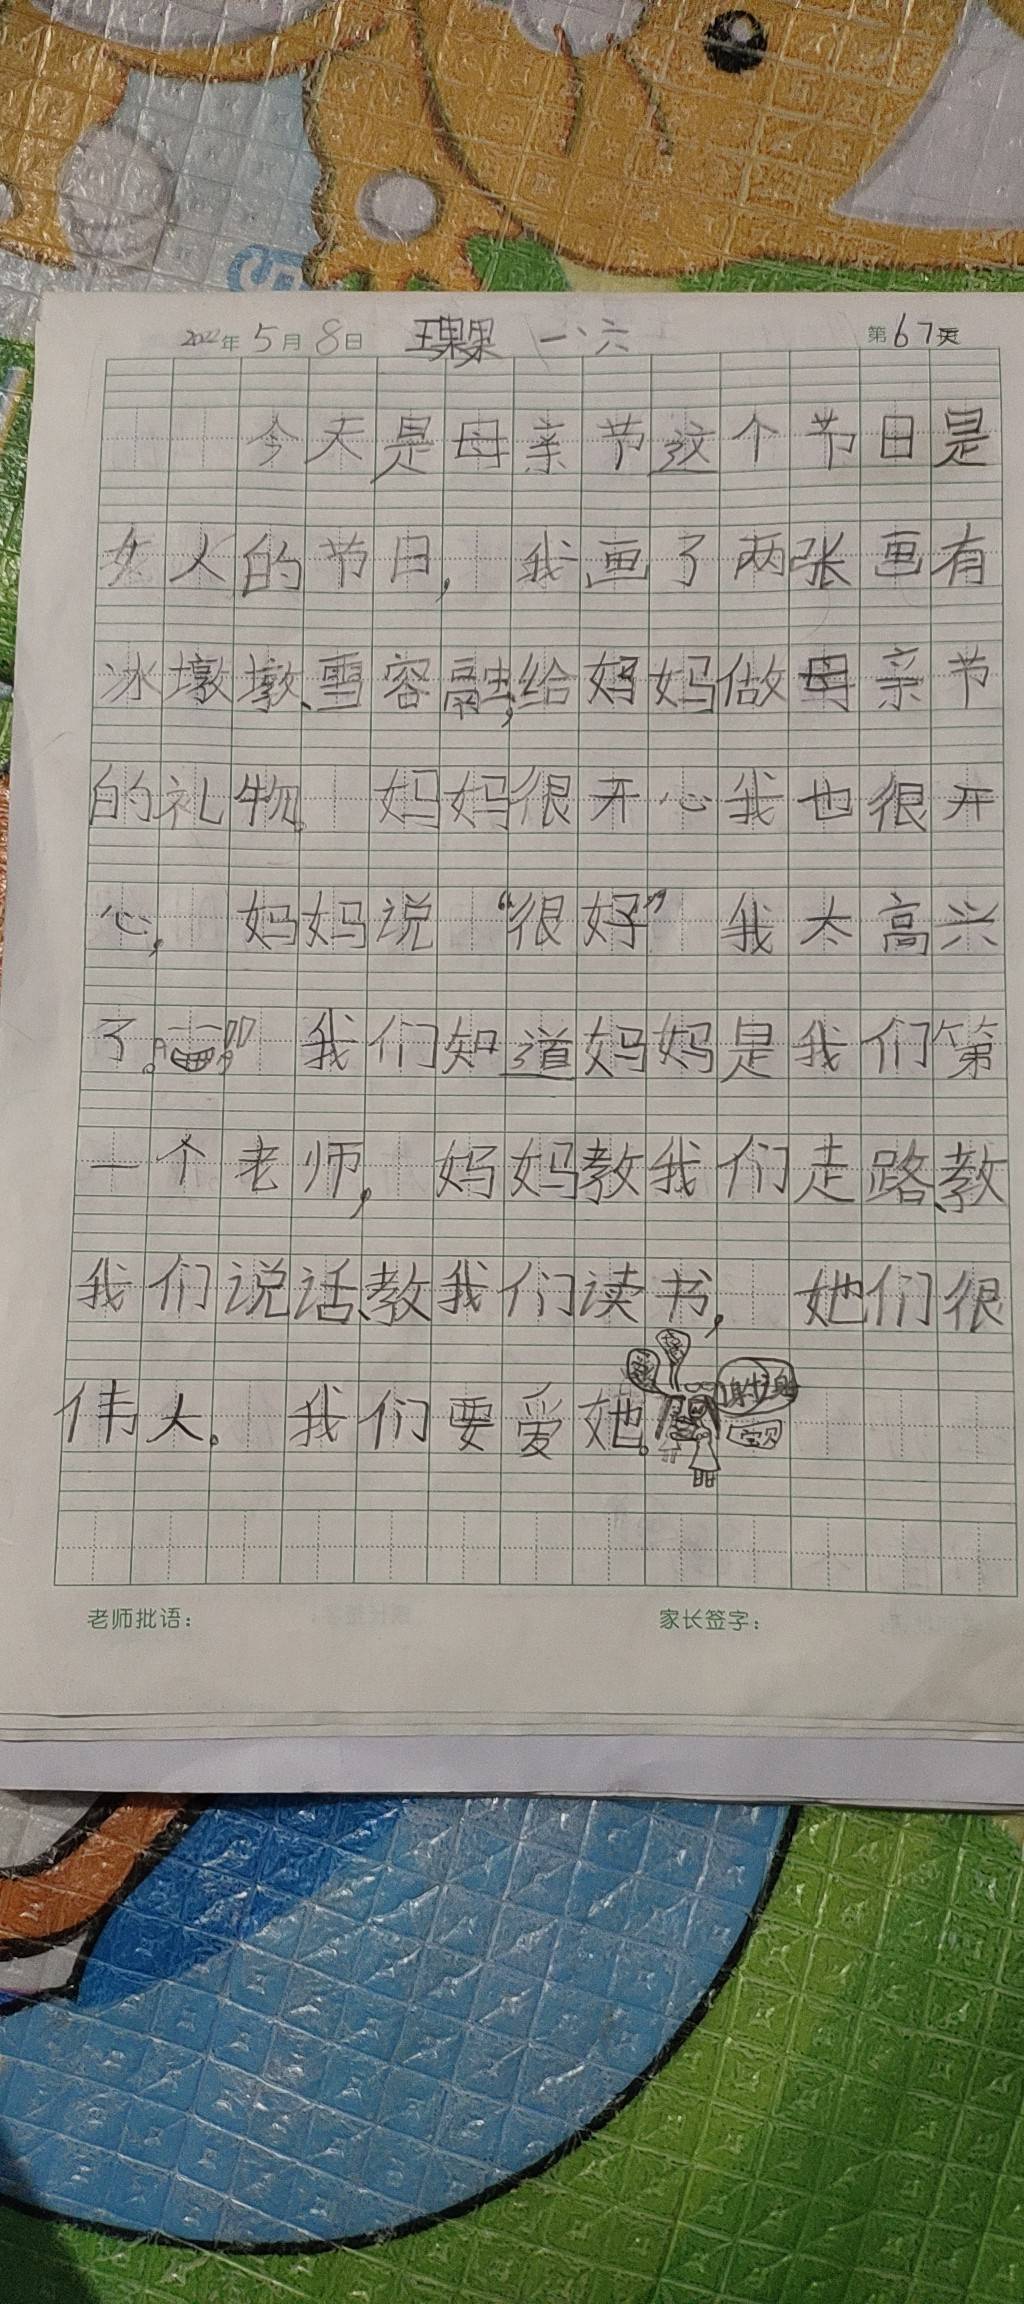 2022年 5月 8日 王果果 一、六 第67页
今天是母亲节这个节日是
女人的节日, 我画了两张画有
冰墩墩、雪容融,给妈妈做母亲节
的礼物。 妈妈很开心我也很开
心, 妈妈说 “很好” 我太高兴
了。 我们知道妈妈是我们第
一个老师, 妈妈教我们走路、教
我们说话、教我们读书, 她们很
伟大。 我们要爱她。
宝贝
老师批语: 家长签字: